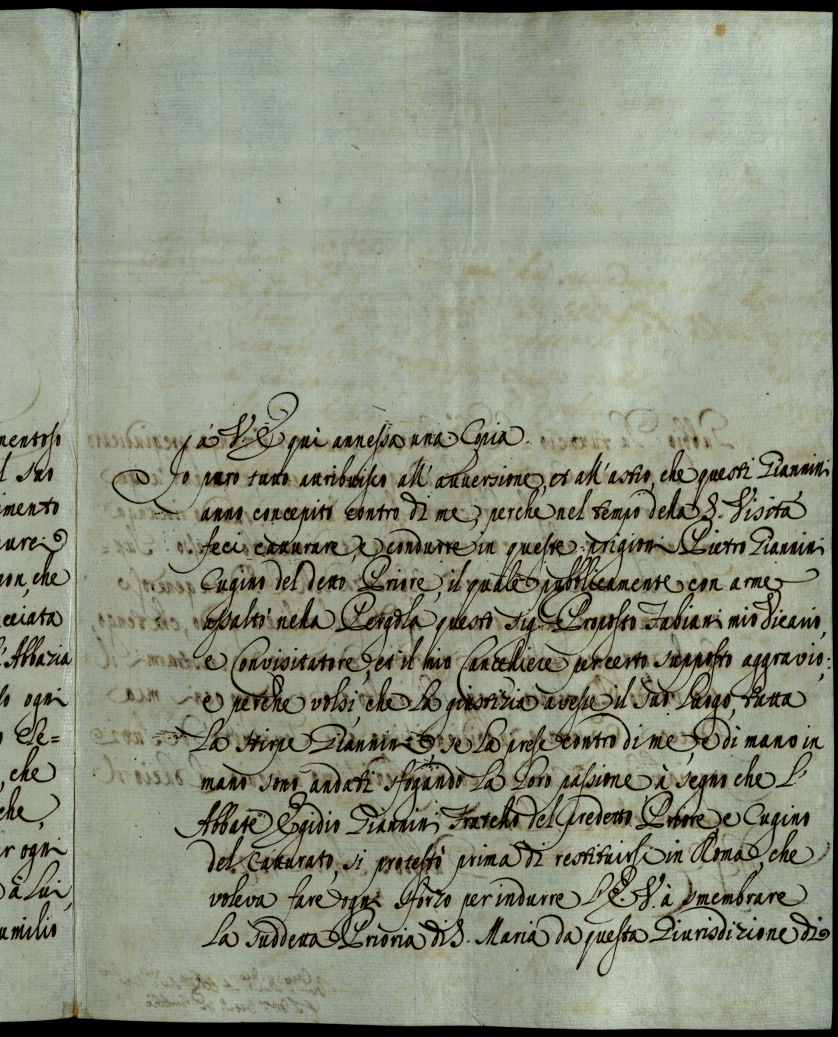 mentoso
l suo
imento
aure
non, che
cciata
l'Abbazia
lo ogni
o Se=
, che
che,
er ogni
à Lui,
umilio
à V. E. qui annessa una Copia.
Io pure tutto attribuisco all'avversione, et all'astio, che questi Giannini
anno concepito contro di me, perche nel tempo della S. Visita
feci catturare, e condurre in queste prigioni Pietro Giannini
Cugino del detto Priore, il quale pubblicamente con arme
assaltò nella Pergola questo Sig. Proposto Fabiani mio Vicario,
e Convisitatore, et il mio Cancelliere per certo supposto aggravio;
e perche volsi, che la giustizia avesse il suo luogo, tutta
La stirpe Giannini se la prese contro di me, e di mano in
mano sono andati sfogando la loro passione à segno che l'
Abbate Egidio Giannini Fratello del predetto Priore e Cugino
del Catturato, si protestò prima di restituirsi in Roma, che
voleva fare ogni sforzo per indurre l'E. V. à smembrare
La suddetta Prioria di S. Maria da questa Giurisdizione di